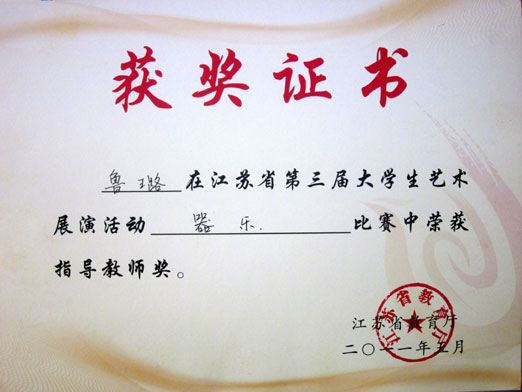 获奖证书
鲁璐在江苏省第三届大学生艺术
展演活动 器乐 比赛中荣获
指导教师奖。
江苏省教育厅
二〇一一年五月
江苏省教育厅